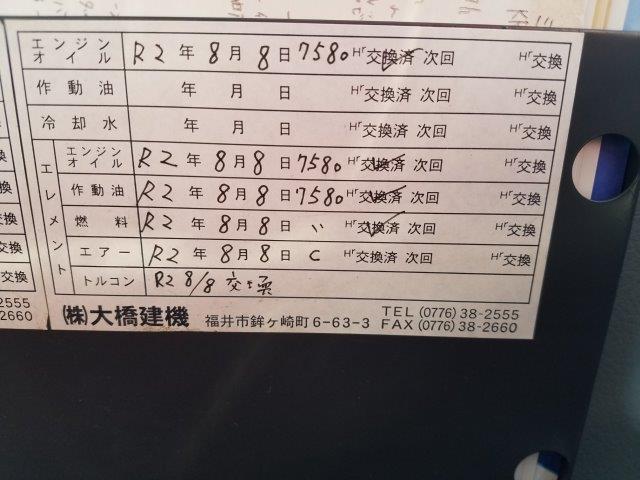 エンジンオイル R2年 8月 8日 7580 Hr交換済 次回 Hr交換
作動油 年 月 日 Hr交換済 次回 Hr交換
冷却水 年 月 日 Hr交換済 次回 Hr交換
エレメント
エンジンオイル R2年 8月 8日 7580 Hr交換済 次回 Hr交換
作動油 R2年 8月 8日 7580 Hr交換済 次回 Hr交換
燃料 R2年 8月 8日 〃 Hr交換済 次回 Hr交換
エアー R2年 8月 8日 C Hr交換済 次回 Hr交換
トルコン R2 8/8 交換
㈱大橋建機 福井市鉾ヶ崎町6-63-3 TEL (0776) 38-2555
FAX (0776) 38-2660
交換
交換
交換
交換
2555
2660